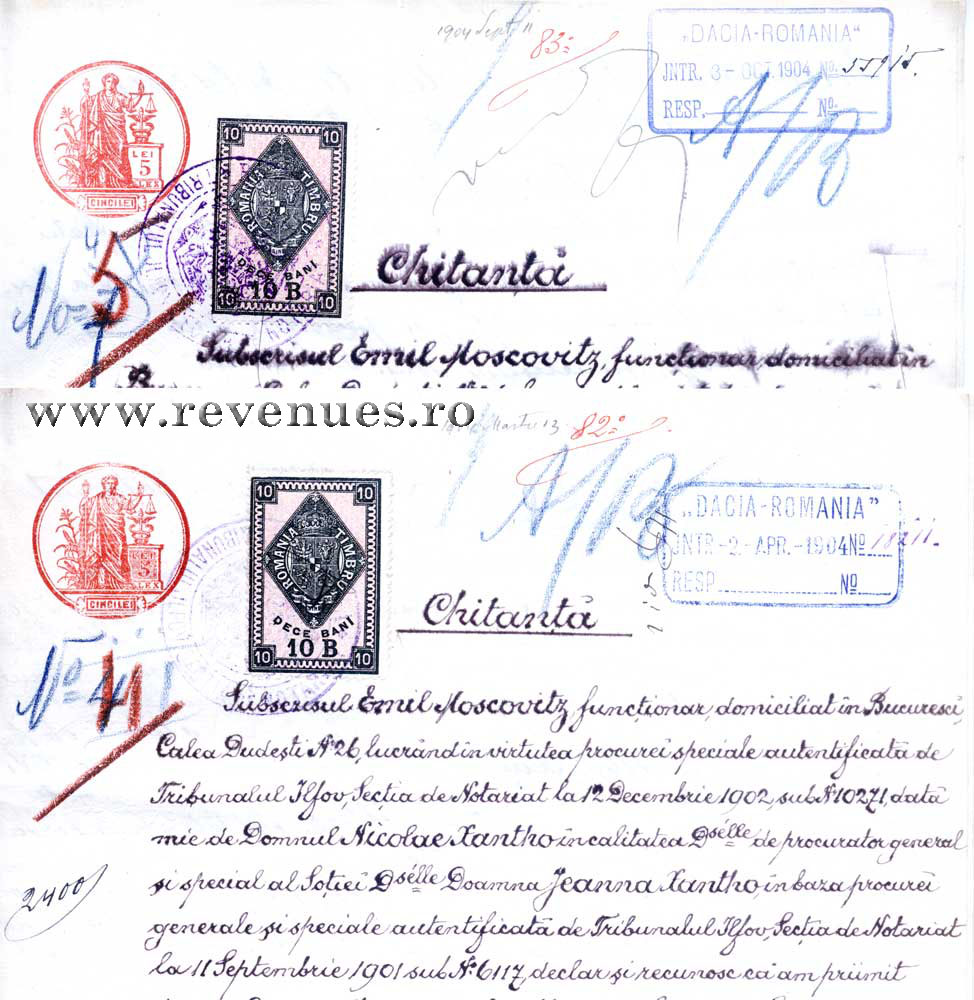 1904 Sept 11
83
„DACIA-ROMANIA“
JNTR. 3-OCT.1904 No.
RESP. No.
LEI
5
LEX
CINCI LEI
TRIBUNALUL
10 10
ROMANIA TIMBRU
DECE BANI
10 10 B 10
5
No
Chitanță
Subscrisul Emil Moscovitz, funcționar, domiciliat în
www.revenues.ro
Martie 13
82
„DACIA-ROMANIA”
JNTR.-2.-APR.-1904 No
RESP. No
5
LEX
CINCI LEI
10 10
ROMANIA TIMBRU
DECE BANI
10 10 B 10
Chitanță
No
Subscrisul Emil Moscovitz, funcționar, domiciliat în Bucuresci,
Calea Dudești No 26, lucrând în virtutea procurei speciale autentificată de
Tribunalul Ilfov, Secția de Notariat la 12 Decembrie 1902, sub No 10271, dată
mie de Domnul Nicolae Xantho in calitatea Dsélle de procurator general
și special al Soției Dsélle Doamna Jeanna Xantho, în baza procurei
2400
generale și speciale autentificată de Tribunalul Ilfov, Secția de Notariat
la 11 Septembrie 1901 sub No. 6117, declar și recunosc că am priimit